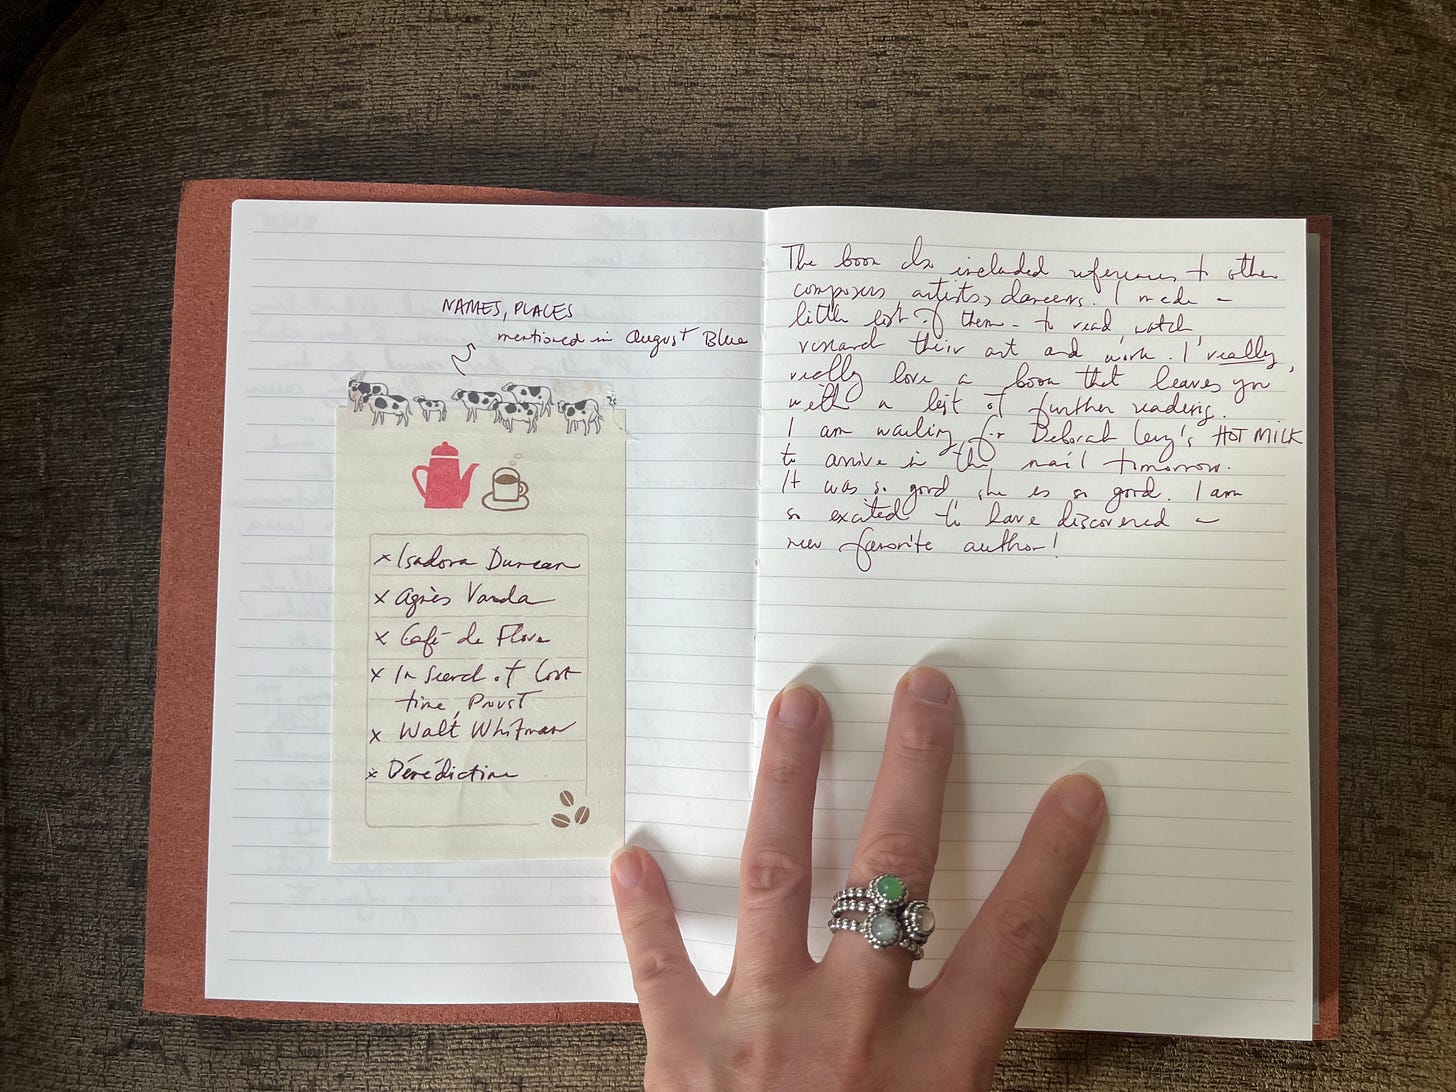 NAMES, PLACES
mentioned in August Blue
x Isadora Duncan
x Agnès Varda
x Café de Flore
x In Search of Lost
time, Proust
x Walt Whitman
x Bénédictine
The book also included references to other
composers, artists, dancers. I made a
little list of them - to read, watch,
research their art and work. I really,
really love a book that leaves you
with a list of further readings.
I am waiting for Deborah Levy's HOT MILK
to arrive in the mail tomorrow.
It was so good, she is so good. I am
so excited to have discovered a
new favorite author!